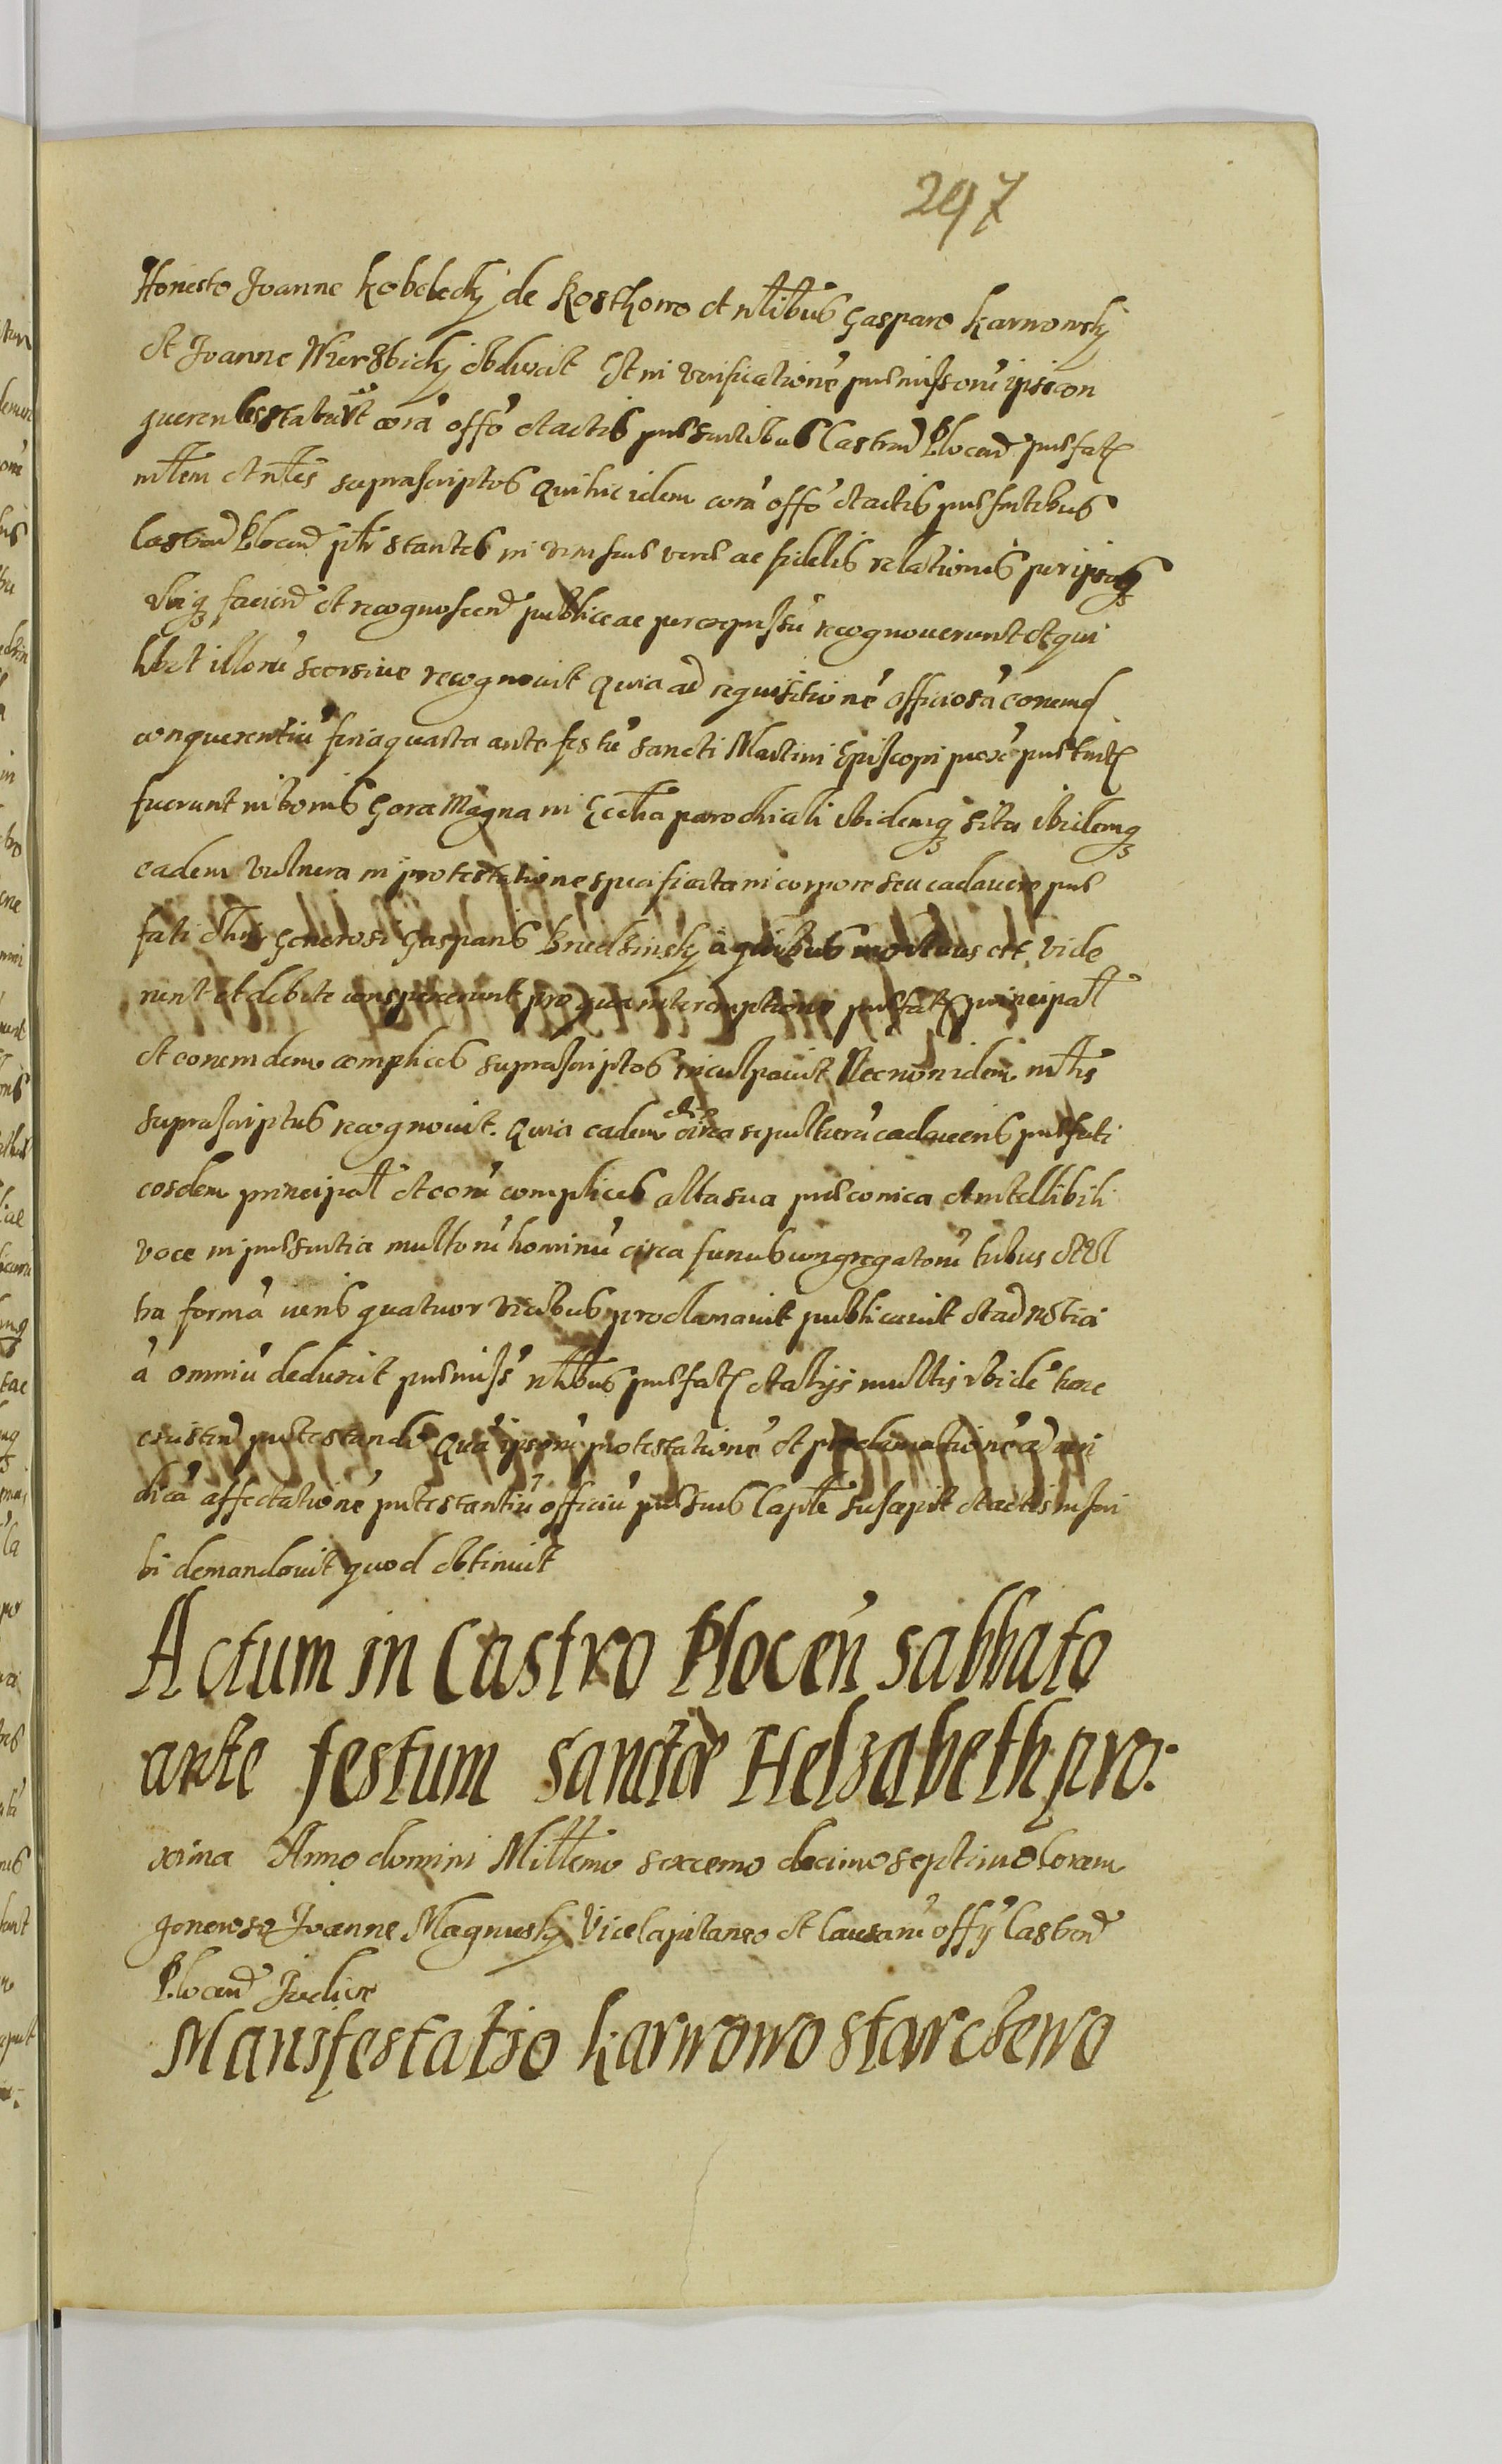 297
Honesto Joanne Kobelecky de Rosthowo et nłibus Gasparo Karwowsky
et Joanne Wierzbicky obduxit Et in verificatione p̃missoru ipsi con
querentes statuerūt corā offō et actis p̃sentibus Castreñ Płoceñ p̃fat
młem et nłes suprascriptos qui hic idem corā offō et actis p̃sentibus
Castreñ Płoceñ pł̃r stantes in vim suæ veræ ac fidelis relationis per ipsosq;
ubiq; facień et recognosceñ publice ac per expressū recognoverunt et qui
libet illorū seorsive recognovit Quia ad requisitionē officiosā eorumd
conquerentiū feria quarta ante festū Sancti Martini Episcopi pxē præterit
fuerunt in bonis Gora Magna in Ecclia parochiali ibidemq; sita ibidemq;
eadem vulnera in protestatione specificata in corpore seu cadavere præ
fati olim Generosi Gasparis Brudzinsky a quibus mortuus est vide
runt et debite conspexerunt pro qua interemptione p̃fat principał
et eorumdem complices suprascriptos inculpavit Necnon idem młis
suprascriptus recognovit. Quia eadem die circa sepulturā cadaveris præfati
eosdem principał et eorū complices alta sua præconica et intellibili
voce in p̃sentia multorū hominū circa funus congregatorū tribus et ul
tra formā iuris quatuor vicibus proclamavit publicavit et ad notici
ā omniū deduxit p̃missē nłibus p̃fat et alijs multis ibidē tunc
existeñ p̃testando Quā ipsorū protestationē et proclamationē ad iuri
dicā affectationē p̃testantiū officiū p̃sens Caplē suscepit et actis inscri
bi demandavit quod obtinuit
Actum in Castro Plocen̄ Sabbato
ante festum Sanctæ Helzabeth pro:
xima Anno domini Millemo sexcemo decimo septimo Coram
generoso Joanne Magnusky Vicecapitaneo et Causarū offy Castreñ
Płoceñ Judice
Manifestatio Karwowo Starczewo